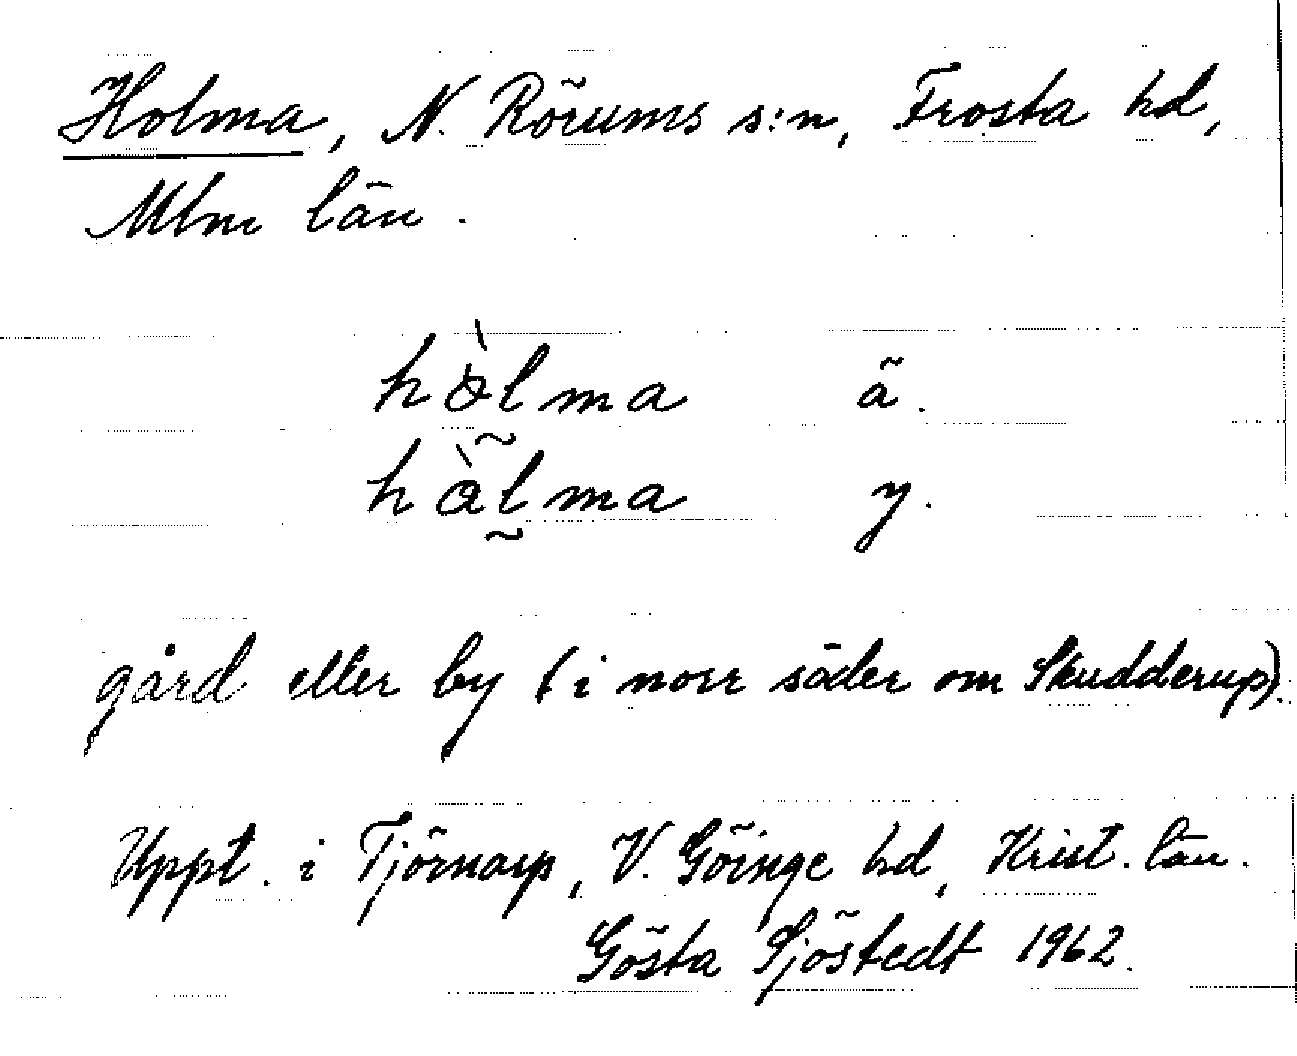 Holma, N. Rörums s:n, Frosta hd,
Mlm län.
hòlma ä.
hàl̰ma y.
gård eller by (i norr söder om Skudderup).
Uppt. i Tjörnarp, V. Göinge hd, Krist. län.
Gösta Sjöstedt 1962.